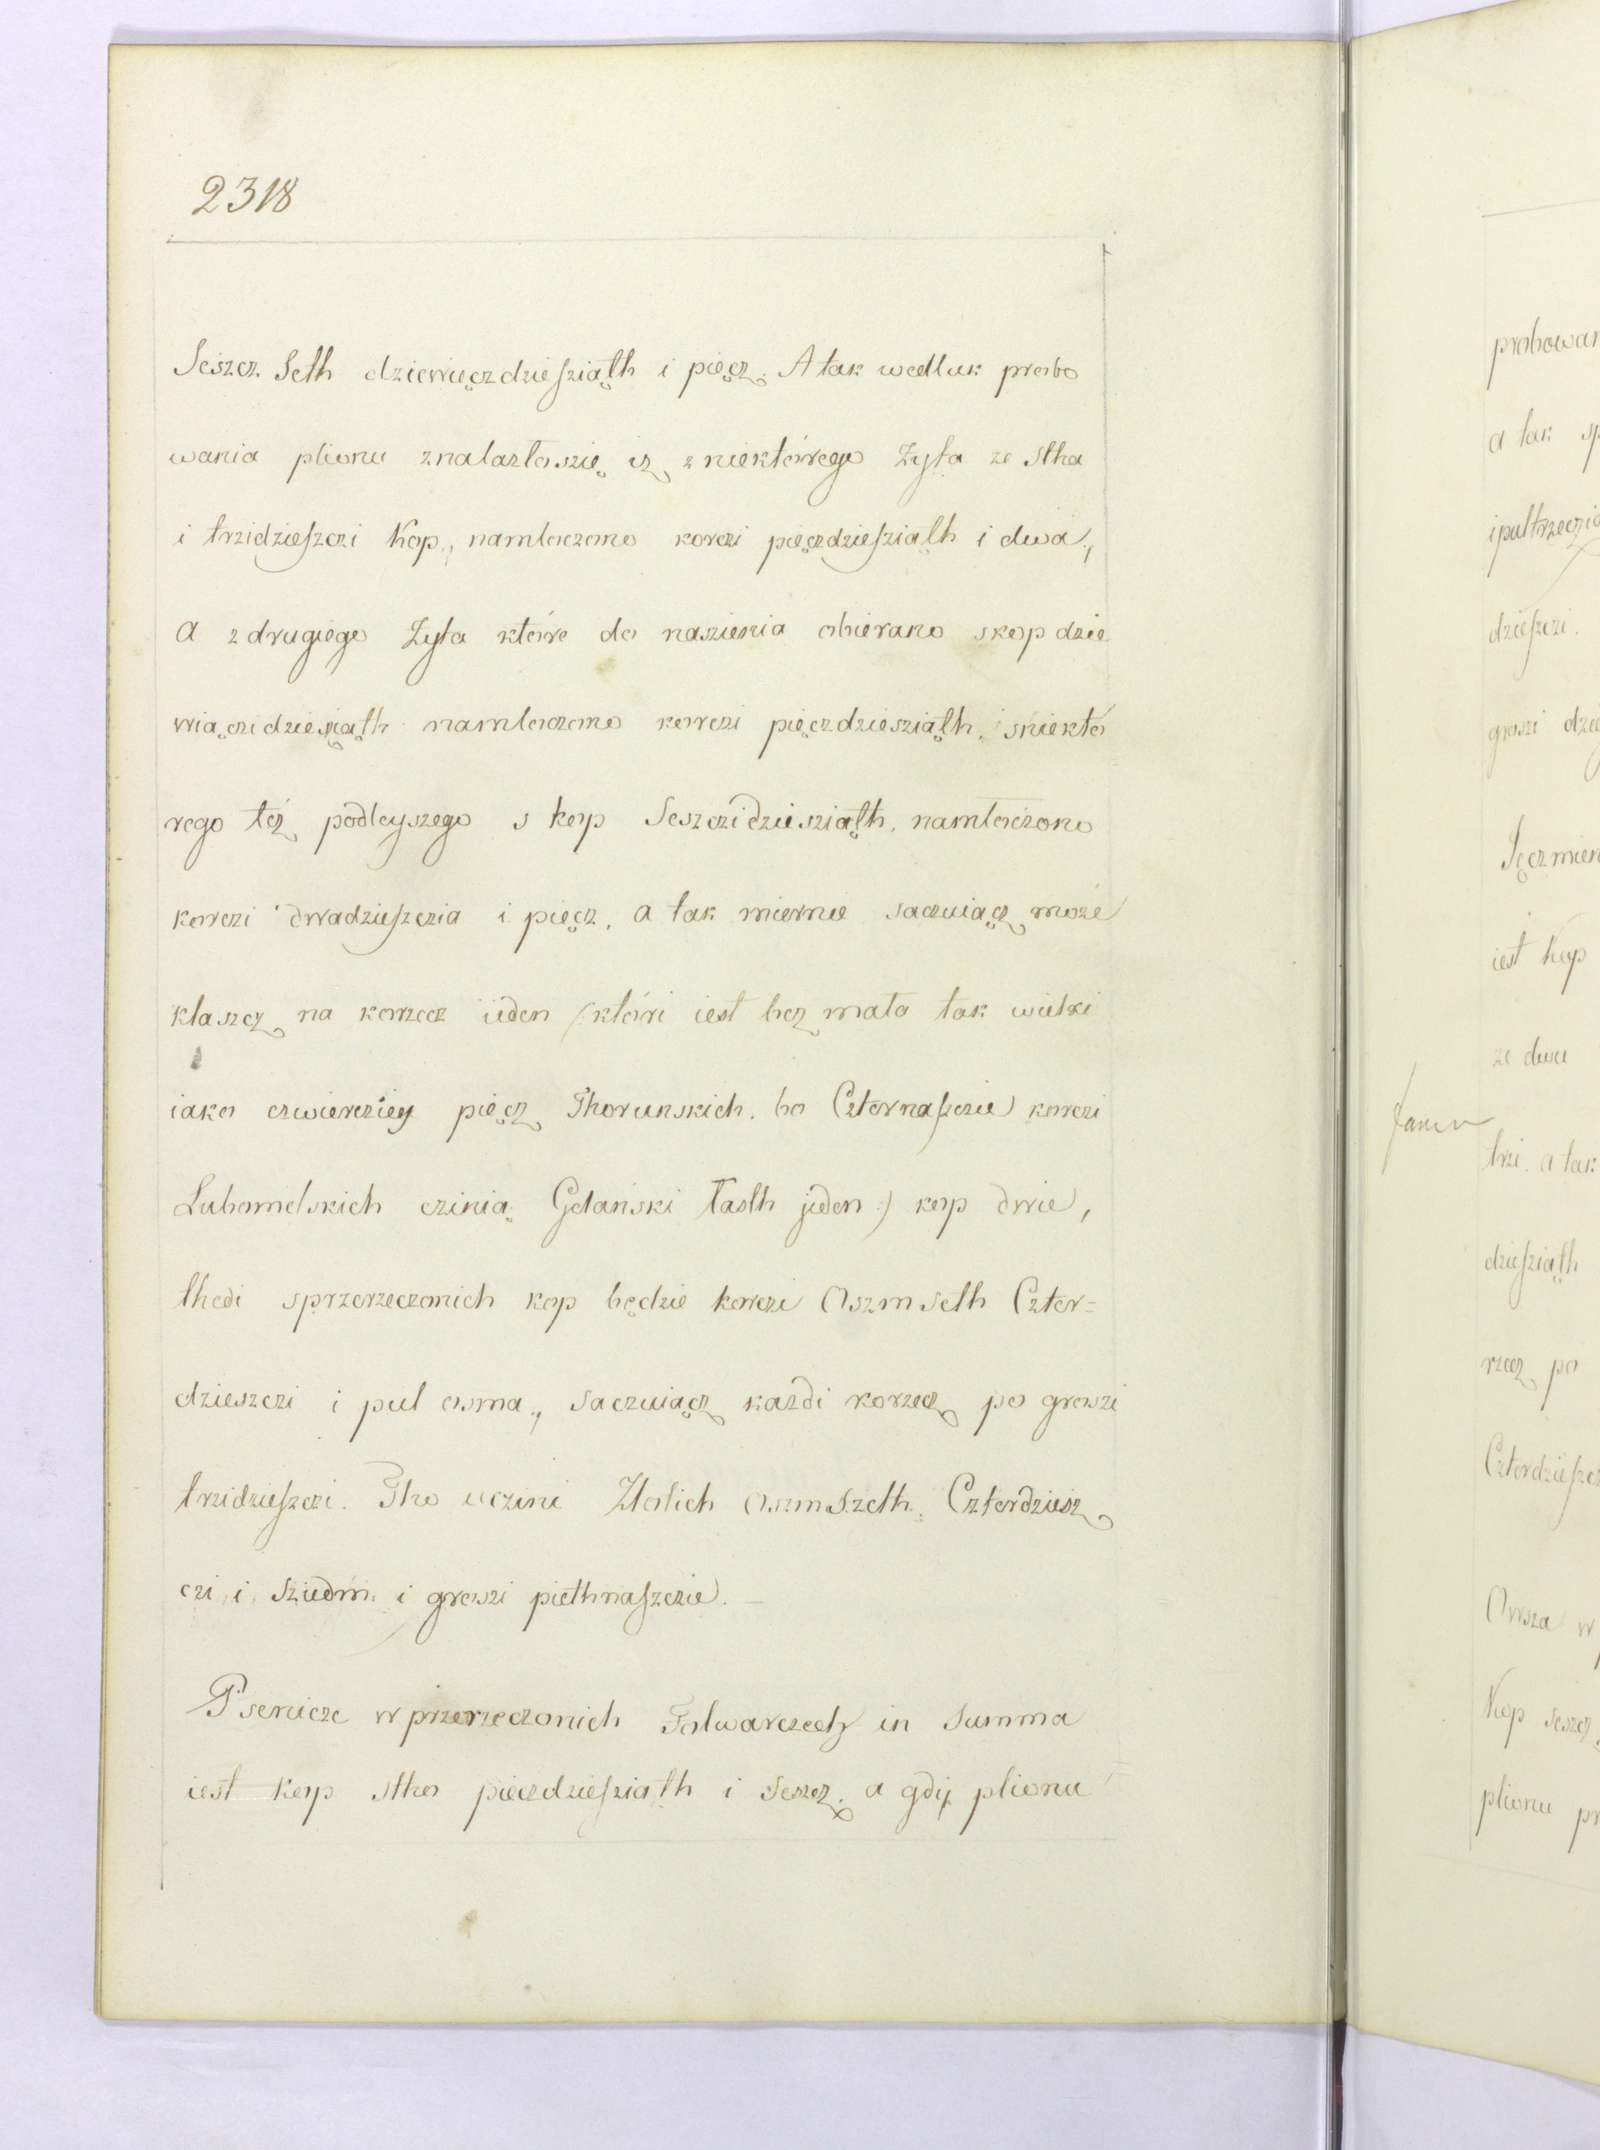 2318
Seszcz Seth dziewięczdzieſziąth i pięcz. A tak wedluk probo
wania plionu znalazłoszię iż z niektórego Zyta ze Stha
i trzidzieſzczi Kop, namloczono korczi pięczdzieſziąth i dwa,
A z drugiego Zyta które do naszienia obierano skop dzie
wiączidziesiąth namloczono korczi pięczdziesziąth, i śniektó
rego też podleyszego s kop Seszczidziesziąth, namloczono
korczi dwadzieſzczia i pięcz, a tak miernie saczuiącz może
klaszcz na korzecz iieden (któri iest bez mała tak wielki
iako czwiercziey pięcz Thorunskich. bo Czternaſzczie korczi
Lubomelskich czinią Gdański Łasth jeden:) kop dwie,
thedi sprzerzeczonich kop będzie korczi Oszmseth Czter=
dzieszczi i pul osma, saczuiącz każdi korzecz po groszi
trzidzieſzczi. Tho uczini Złotich Oszmszeth Czterdziesz
czi i sziedm i groszi piethnaſzczie.
Psenicze w przerzeczonich Folwarczech in Summa
iest kop stho pieczdzieſziąth i seszcz. a gdÿ plionu
probowan
a tak
dzieſzczi.
groszi
Jęczmien
iest kop
ze dwu
trzi. a tak
dzieſziąth
rzecz po
Czterdzieſzcz
Owsza w
Kop seszcz
plionu pr